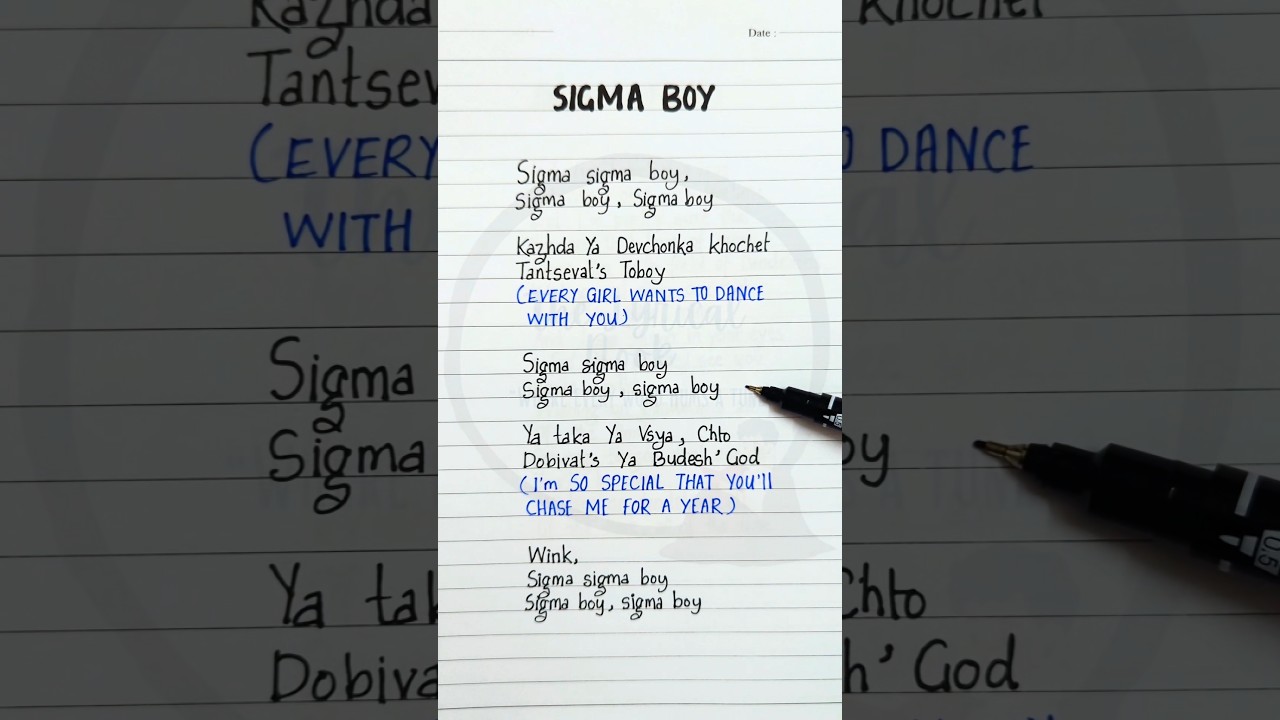 Date :
SIGMA BOY
Sigma sigma boy,
Sigma boy, Sigma boy
Kazhda Ya Devchonka khochet
Tantsevat's Toboy
(EVERY GIRL WANTS TO DANCE
WITH YOU)
Sigma sigma boy
Sigma boy, sigma boy
Ya taka Ya Vsya, Chto
Dobivat's Ya Budesh' God
(I'm SO SPECIAL THAT YOU'll
CHASE ME FOR A YEAR)
Wink,
Sigma sigma boy
Sigma boy, sigma boy
0.5